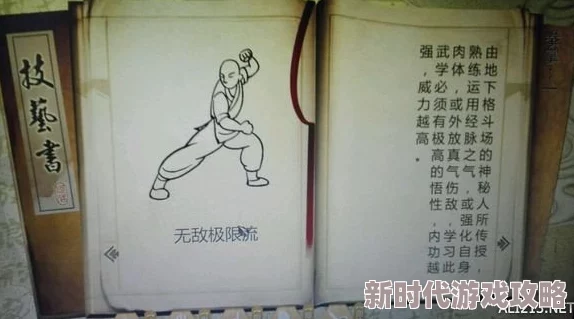 技藝書
无敌极限流
由地下格斗场的神秘人所传授，
熟练运用经脉之气，或强化自身
肉体，或外放真气伤敌，学习此
武学必须有极高的悟性，内功越
强，威力越高。
新时代游戏攻略